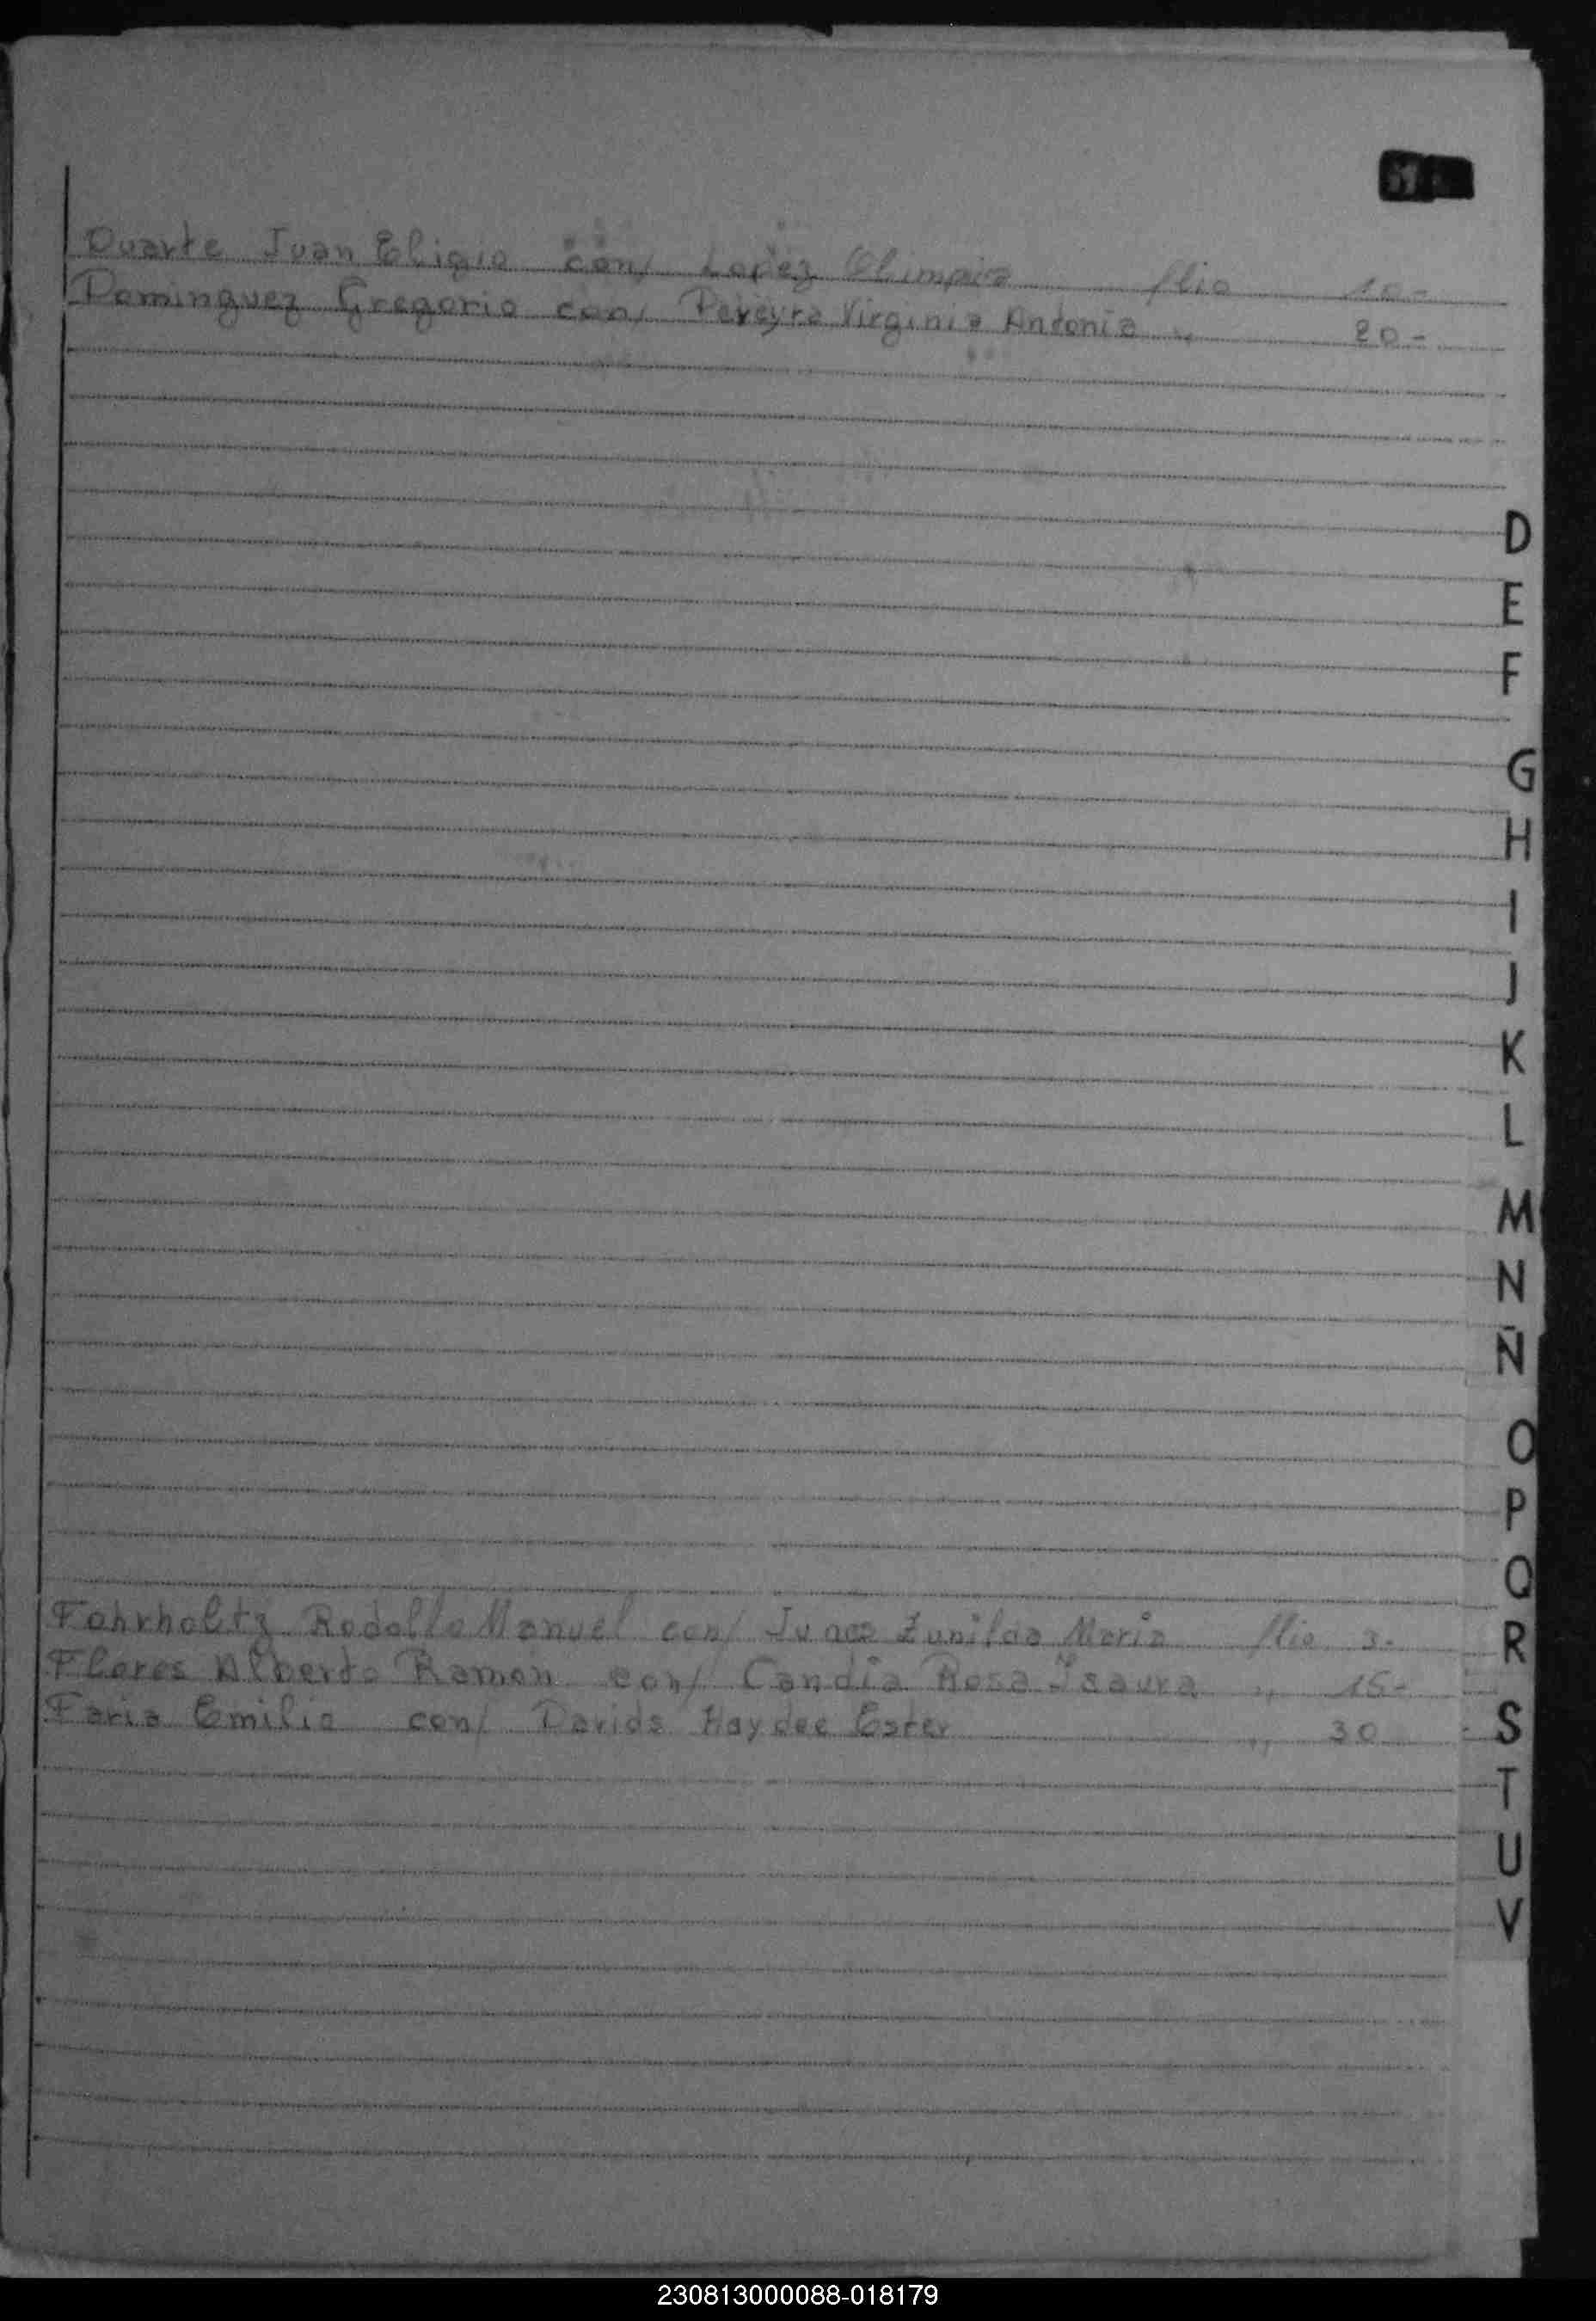 Duarte Juan Eligio con/ Lopez Olimpia flio 10-
Dominguez Gregorio con/ Pereyra Virginia Antonia ,, 20-
D
E
F
G
H
I
J
K
L
M
N
Ñ
O
P
Q
Fahrholtz Rodolfo Manuel con/ Zunilda Maria flio 3-
R
Flores Alberto Ramon con/ Candia Rosa Isaura ,, 15-
Faria Emilio con/ Davids Haydee Ester ,, 30
S
T
U
V
230813000088-018179